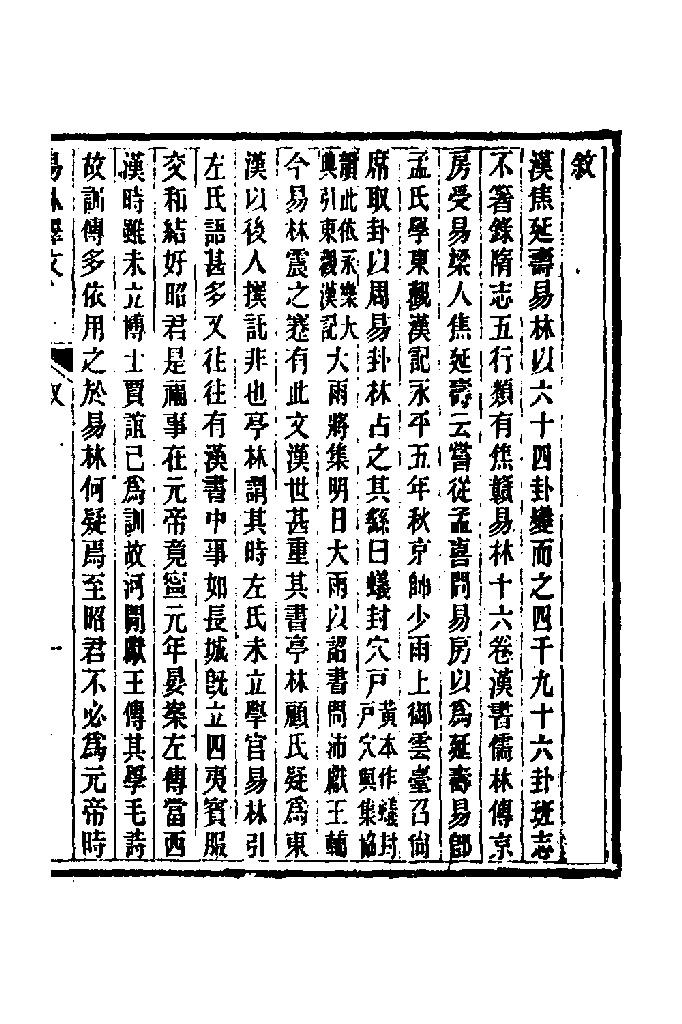 敘
漢焦延壽易林以六十四卦變而之四千九十六卦班志
不箸錄隋志五行類有焦贛易林十六卷漢書儒林傳京
房受易梁人焦延壽云嘗從孟喜問易房以爲延壽易卽
孟氏學東觀漢記永平五年秋京師少雨上御雲臺召尙
席取卦以周易卦林占之其繇曰蟻封穴戶黃本作蟻封戶穴與集協
讀此依永樂大典引東觀漢記大雨將集明日大雨以詔書問沛獻王輔
今易林震之蹇有此文漢世甚重其書亭林顧氏疑爲東
漢以後人撰託非也亭林謂其時左氏未立學官易林引
左氏語甚多又往往有漢書中事如長城旣立四夷賓服
交和結好昭君是福事在元帝竟寧元年晏案左傳當西
漢時雖未立博士賈誼已爲訓故河閒獻王傳其學毛詩
故訓傳多依用之於易林何疑焉至昭君不必爲元帝時
易林釋文
敘
一